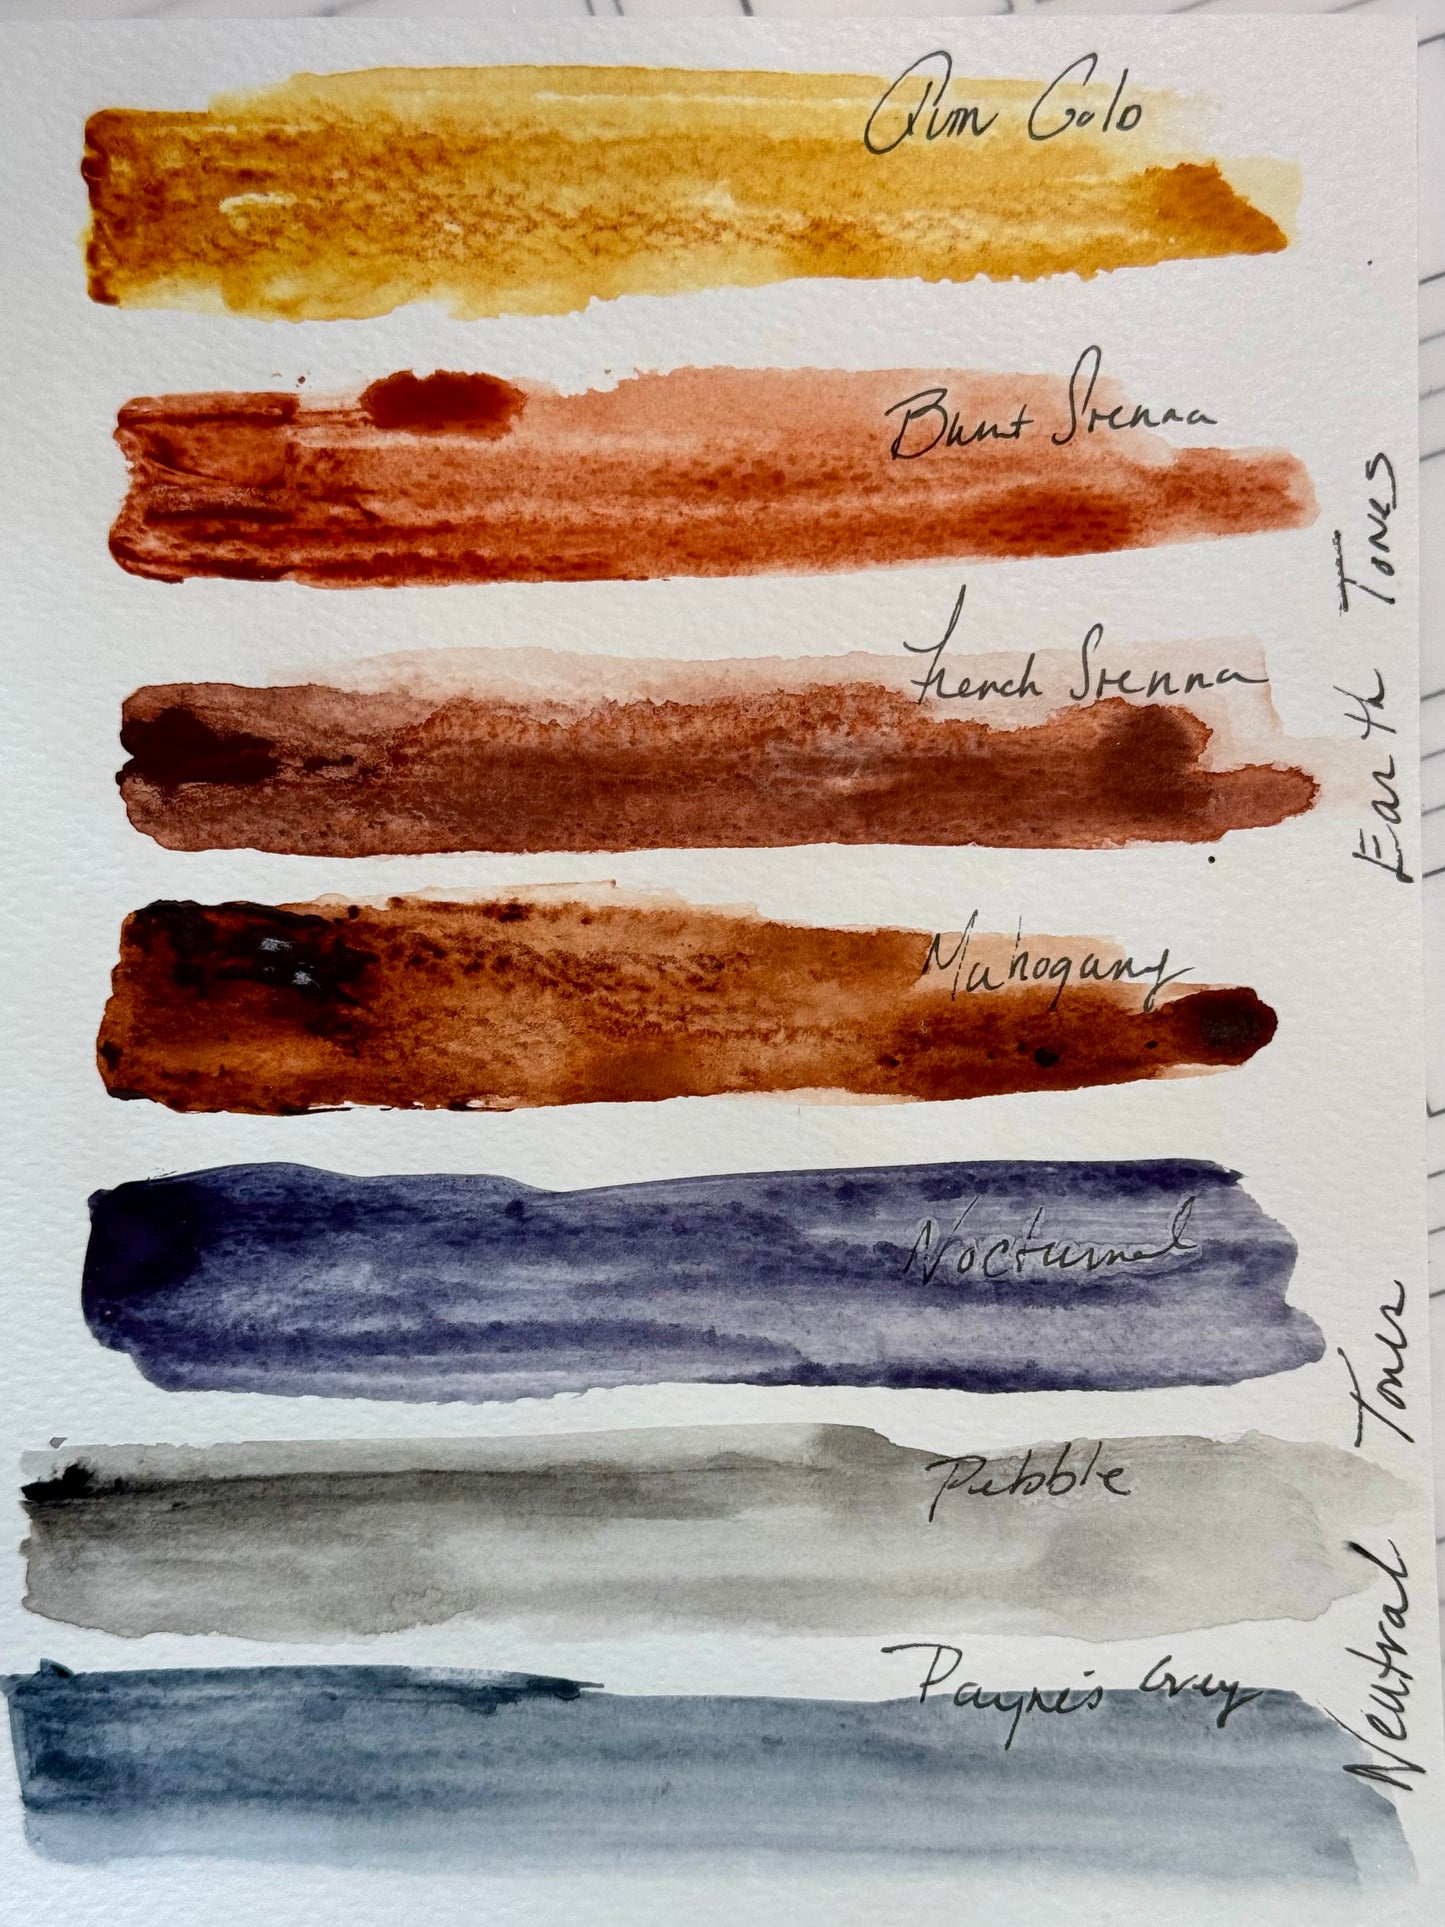 Quin Gold
Burnt Sienna
French Sienna
Mahogany
Nocturnal
Pebble
Payne's Grey
Earth Tones
Neutral Tones